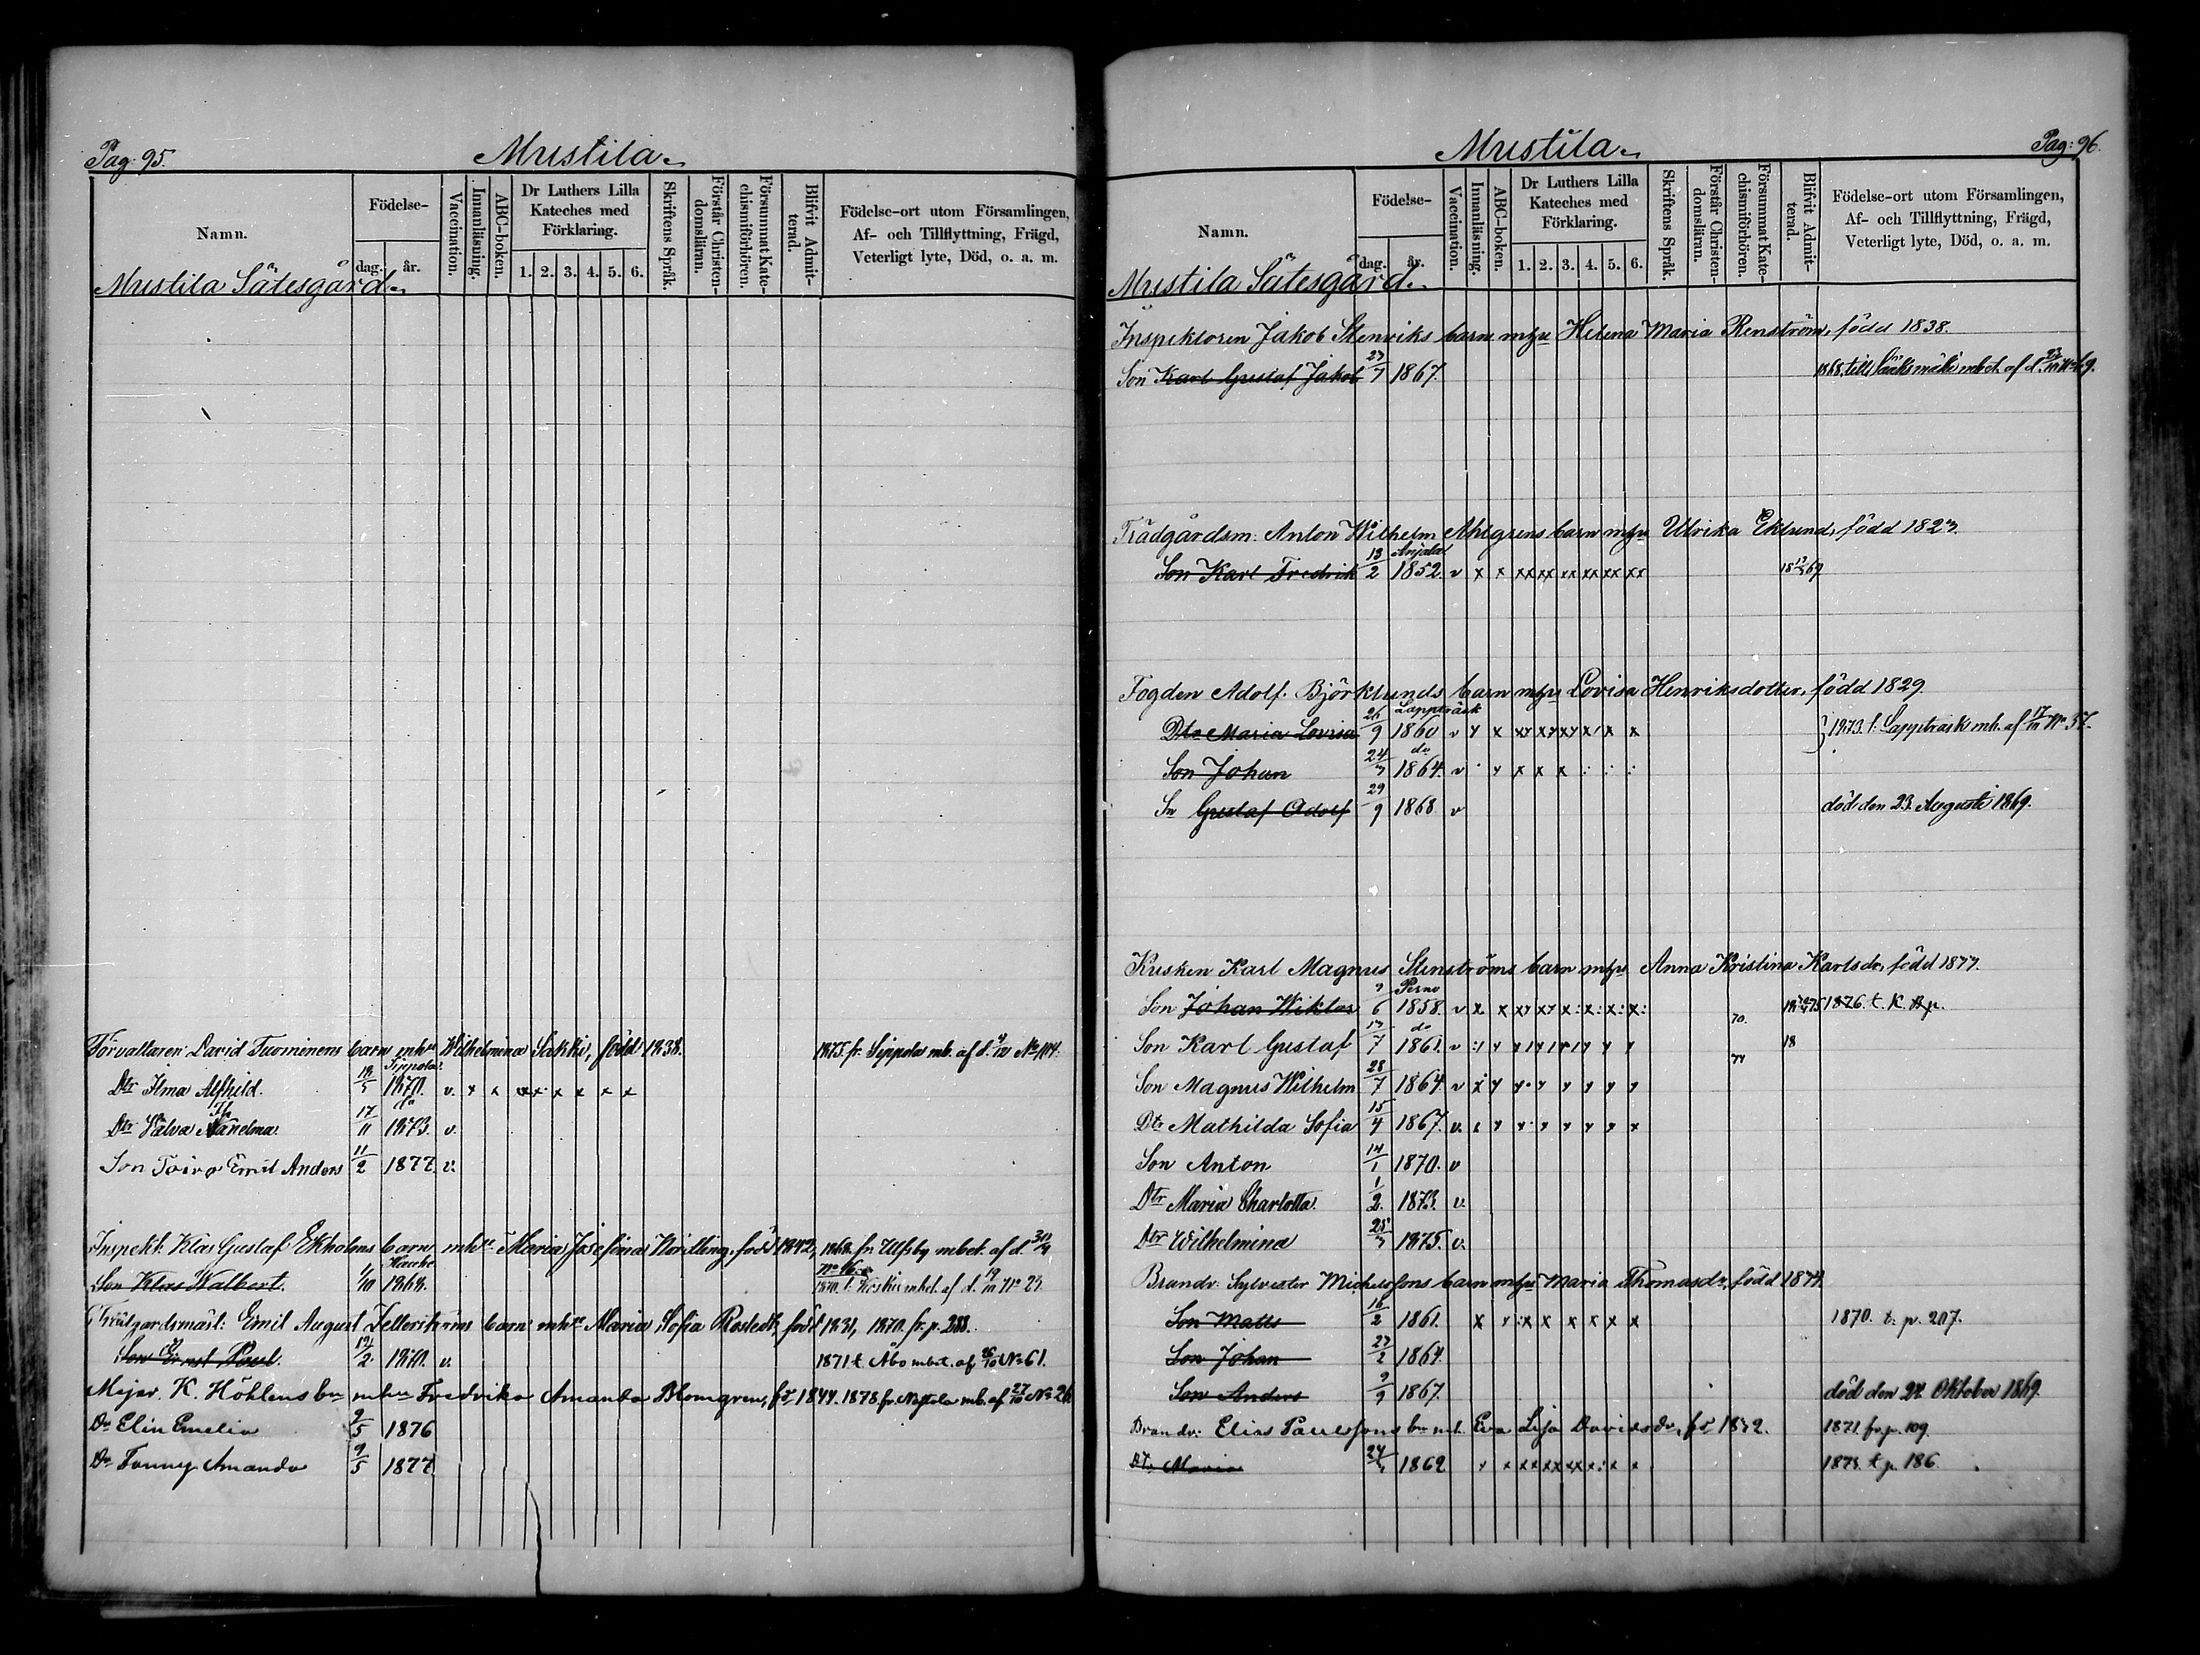 Pag: 95.
Mustila
Namn.
Födelse-
dag.
år.
Vaccination.
Innanläsning.
ABC-boken.
Dr Luthers Lilla Kateches med Förklaring.
1. 2. 3. 4. 5. 6.
Skriftens Språk.
Förstår Christendomsläran.
Försummat Katechismiförhören.
Blifvit Admitterad.
Födelse-ort utom Församlingen, Af- och Tillflyttning, Frägd, Veterligt lyte, Död, o. a. m.
Mustila Sätesgård
Förvaltaren David Tuominens barn mhu Wilhelmina Sakki, född 1838. 1875 fr. Sippola mb. af d. No 104.
Sippola
Dtr Ilma Alfhild. 1870. v. x x xx x x x x
do
Dtr Salva 17/11 1873. v.
Son Toivo Emil Anders 11/2 1877 v.
Inspekt: Klas Gustaf Ekholms barn mhu Maria Josefina född 1842, 1868 fr. Ulfsby mbet. af d. 30/4
No 16
Son Klas Walbert. 1/10 1868. 1870. t. mbet. af d. No 29
Trädgårdsmäst: Emil August barn mhu Maria Sofia född 1831, 1870. fr. p. 288.
Son Ernst Paul. 1870. v. 1871 t. Åbo mbet. af No 61.
Mejer. K. Höhlens bn mhu Fredrika Amanda Blomgren, fd 1844. 1878 fr. mb. af 27/10 No 26
Dr Elin Emelia 9/5 1876
Dr Fanny Amanda 9/5 1877
Mustila
Pag: 96.
Namn.
Födelse-
dag.
år.
Vaccination.
Innanläsning.
ABC-boken.
Dr Luthers Lilla Kateches med Förklaring.
1. 2. 3. 4. 5. 6.
Skriftens Språk.
Förstår Christendomsläran.
Försummat Katechismiförhören.
Blifvit Admitterad.
Födelse-ort utom Församlingen, Af- och Tillflyttning, Frägd, Veterligt lyte, Död, o. a. m.
Mustila Sätesgård
Inspektoren Jakob Stenriks barn mhu Helena Maria Renström, född 1838.
Son Karl Gustaf Jakob 23/7 1867. 1868. till Sääksmäki mbet. af d.
Trädgårdsm: Anton Wilhelm Ahlgrens barn mhu Ulrika Eklund, född 1823.
Anjala
Son Karl Fredrik 13/2 1852. v x x xx xx xx xx xx xx 18 69
Fogden Adolf Björklunds barn mhu Lovisa Henriksdotter, född 1829.
Lappträsk
Dtr Maria Lovisa 26/9 1860 v 1873. t. Lappträsk mb. af 17/11 No 57.
do
Son Johan 24/7 1864. v
Sn Gustaf Adolf 29/9 1868 v död den 23 Augusti 1869.
Kusken Karl Magnus Stenströms barn mhu Anna Kristina Karlsdr, född 1877.
Perno
Son Johan Wiktor 6 1858. v x 1876. t. K. p.
do
70.
Son Karl Gustaf 13/7 1861. v 18
77
Son Magnus Wilhelm 28/7 1864. v
Dtr Mathilda Sofia 15/4 1867. v.
Son Anton 14/1 1870. v
Dtr Maria Charlotta. 1/2 1873. v.
Dtr Wilhelmina 1875. v.
Brandv: Sylvester Michelssons barn mhu Maria Thomasdr, född
Son Matts 16/2 1861. 1870. t. p. 207.
Son Johan 27/2 1864.
Son Anders 9/9 1867. död den 24 Oktober 1869.
Brandv: Elias Paulssons bn mh. Eva Lisa Davidsdr, fd 1842. 1871 fr p. 109.
Dtr Maria 1862 t. p. 186.